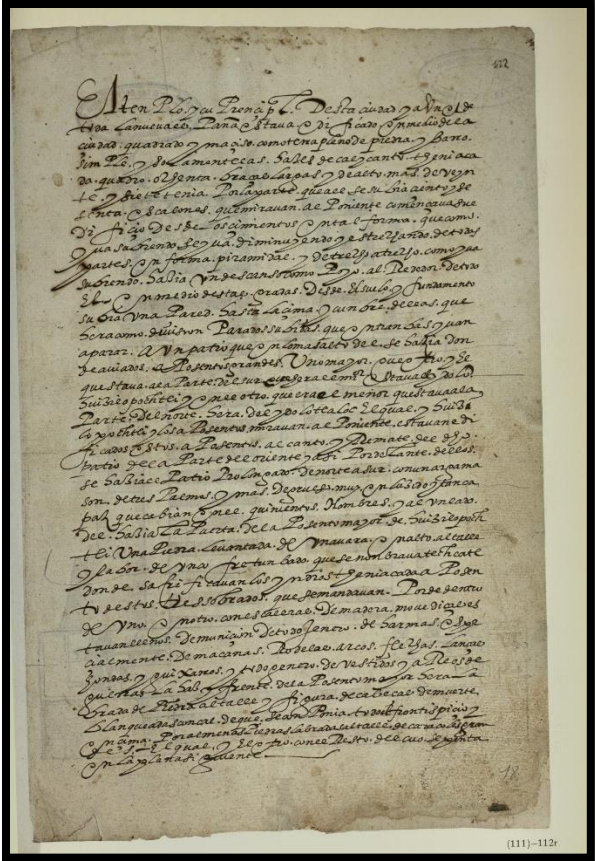 112
El tenplo y cu prencipl. Desta ciudad y a un de
toda la nueva es pana estava edificado en medio de la
ciudad. quadrado y maciso. como terrapleno de piedra y barro.
simple. y solamente las hazes de cal y canto. tenia ca
da quadro. ochenta braças largas y de alto. mas de veyn
te y siete tenia. por la parte. que a el se subia ciento y se
senta escalones. que miravan. al poniente començava el e
dificio desde los cimientos en tal forma. que como.
yva subiendo. se yva. diminuyendo y estrechando. de todas
partes. en forma. piramidal. y de trecho a trecho. como yva
subiendo. hazia un descanso como poyo. al rededor. de todo
el en medio destas gradas. desde. el suelo y fundamento
subia una pared. hasta la cima. y cunbre. dellas. que
hera como. division para dos subidas. que entranbas yvan
a parar. a un patio que en lo mas alto del. se hazia don
de avia dos. aposentos grandes. uno mayor. que el otro y el
que estava. a la parte del sur estava el ydolo.
huizilopochtli y en el otro. que era el menor que estava a la
parte del norte. hera. del ydolo tlaloc el qual. y huizi
lopochtli y los aposentos miravan. al poniente. estavan edi
ficados estos. aposentos. al canto. y remate del dho.
patio de la parte del oriente y asi por delante. dellos.
se hazia el patio prolongado. de norte a sur. con un argama
son. de tres palmos y mas. de grueso. muy enluzido y tan ca
paz que cabian en el. quinientos. hombres. y al un cabo.
del. hazia la puerta. del aposento mayor. de huizilopoch
tli una piedra. levantada. de una vara. en alto. al talle
y labor. de un cofre tunbado. que se nonbrava techcatl
donde. sacrificavan los yndios tenia cada aposen
to destos. sus sobrados. que se mandavan. por de dentro
el uno. en otro. con escaleras. de madera. movediças es
tavan llenos. de municion de todo jenero. de harmas. espe
cialmente. de macanas. rodelas. arcos. flechas. lanças
hondas. y guijarros. y todo genero. de vestidos y arreos de
guerra la haz y frente. del aposento mayor hera la
brada de piedra al talle y figura. de cabeças. de muerte
blanqueadas con cal. de que se conponia. todo el frontispicio y
encima. por almenas piedras labradas al talle. de caracoles gran
des. el qual. y el otro. con el resto. del cu se pinta
en la plana siguiente
12
{111}–112r